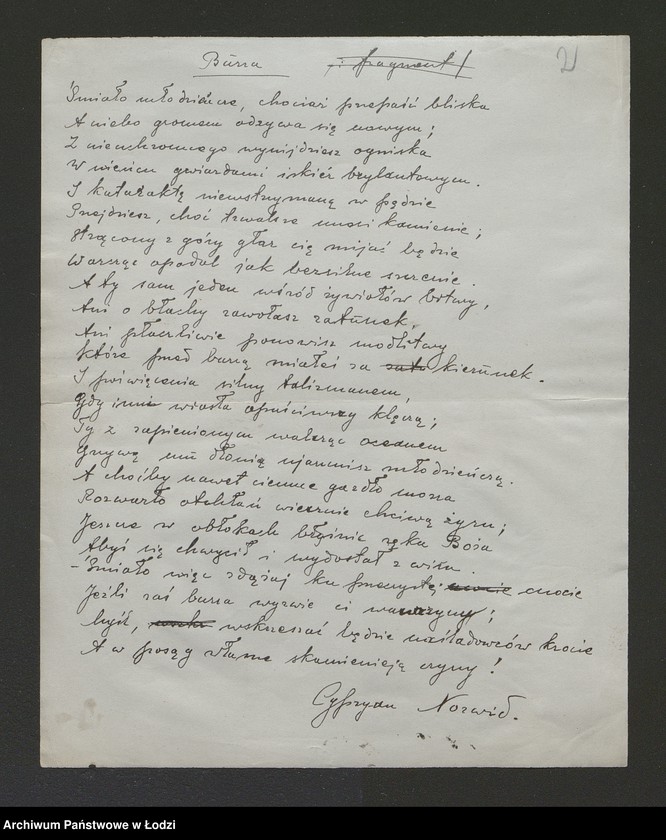 Burza /: fragment/ 2
Śmiało młodzieńcze, chociaż przepaść bliska
A niebo gromem odzywa się nowym;
Z nieuchronnego wynijdziesz ogniska
W wieńcu gwiazdami iskier brylantowym.
I kataraktę niewstrzymaną w pędzie
Przejdziesz, choć trwalsze unosi kamienie;
Strącony z góry głaz cię mijać będzie
Warcząc opodal jak bezsilne szczenie.
A ty sam jeden wśród żywiołów bitwy,
Ani o błachy zawołasz ratunek,
Ani płaczliwie ponowisz modlitwy
Które przed burzą miałeś za kierunek.
I poświęcenia silny talizmanem,
Gdy inni wiosła opuściwszy klęczą;
Ty z zapienionym walcząc oceanem
Grzywę mu dłonią ujarzmisz młodzieńczą.
A choćby nawet ciemne gardło morza
Rozwarło otchłań wiecznie chciwą żyru;
Jeszcze w obłokach błyśnie ręka Boża
Abyś się chwycił i wydostał z wiru.
- Śmiało więc zdążaj ku przeczystej cnocie
Jeżli zaś burza wyrwie ci wawrzyny;
Myśl, wskrzeszać będzie naśladowców krocie
A w posąg własne skamienieją czyny!
Cypryan Norwid.
Archiwum Państwowe w Łodzi